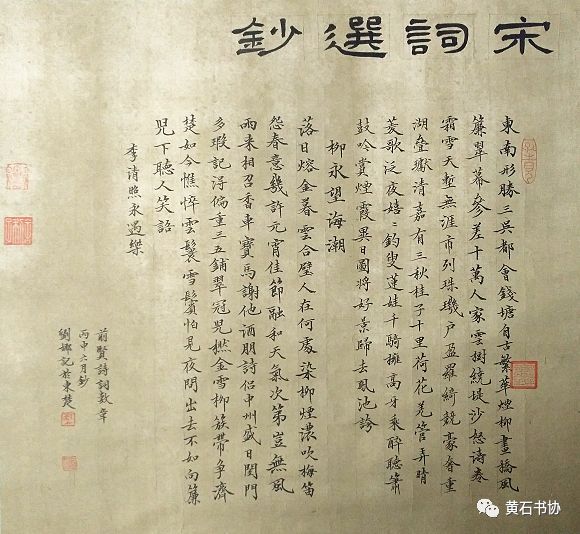 宋詞選鈔
東南形勝三吳都會錢塘自古繁華煙柳畫橋風
簾翠幕參差十萬人家雲樹繞堤沙怒濤卷
霜雪天塹無涯市列珠璣戶盈羅綺競豪奢重
湖疊巘清嘉有三秋桂子十里荷花羌管弄晴
菱歌泛夜嬉嬉釣叟蓮娃千騎擁高牙乘醉聽簫
鼓吟賞煙霞異日圖將好景歸去鳳池誇
柳永望海潮
落日熔金暮雲合璧人在何處染柳煙濃吹梅笛
怨春意幾許元宵佳節融和天氣次第豈無風
雨來相召香車寶馬謝他酒朋詩侶中州盛日閨門
多暇記得偏重三五鋪翠冠兒撚金雪柳簇帶爭濟
楚如今憔悴雲鬟雪鬢怕見夜間出去不如向簾
兒下聽人笑語
李清照永遇樂
前賢詩詞數章
丙申六月鈔
劉 記於東楚
黄石书协